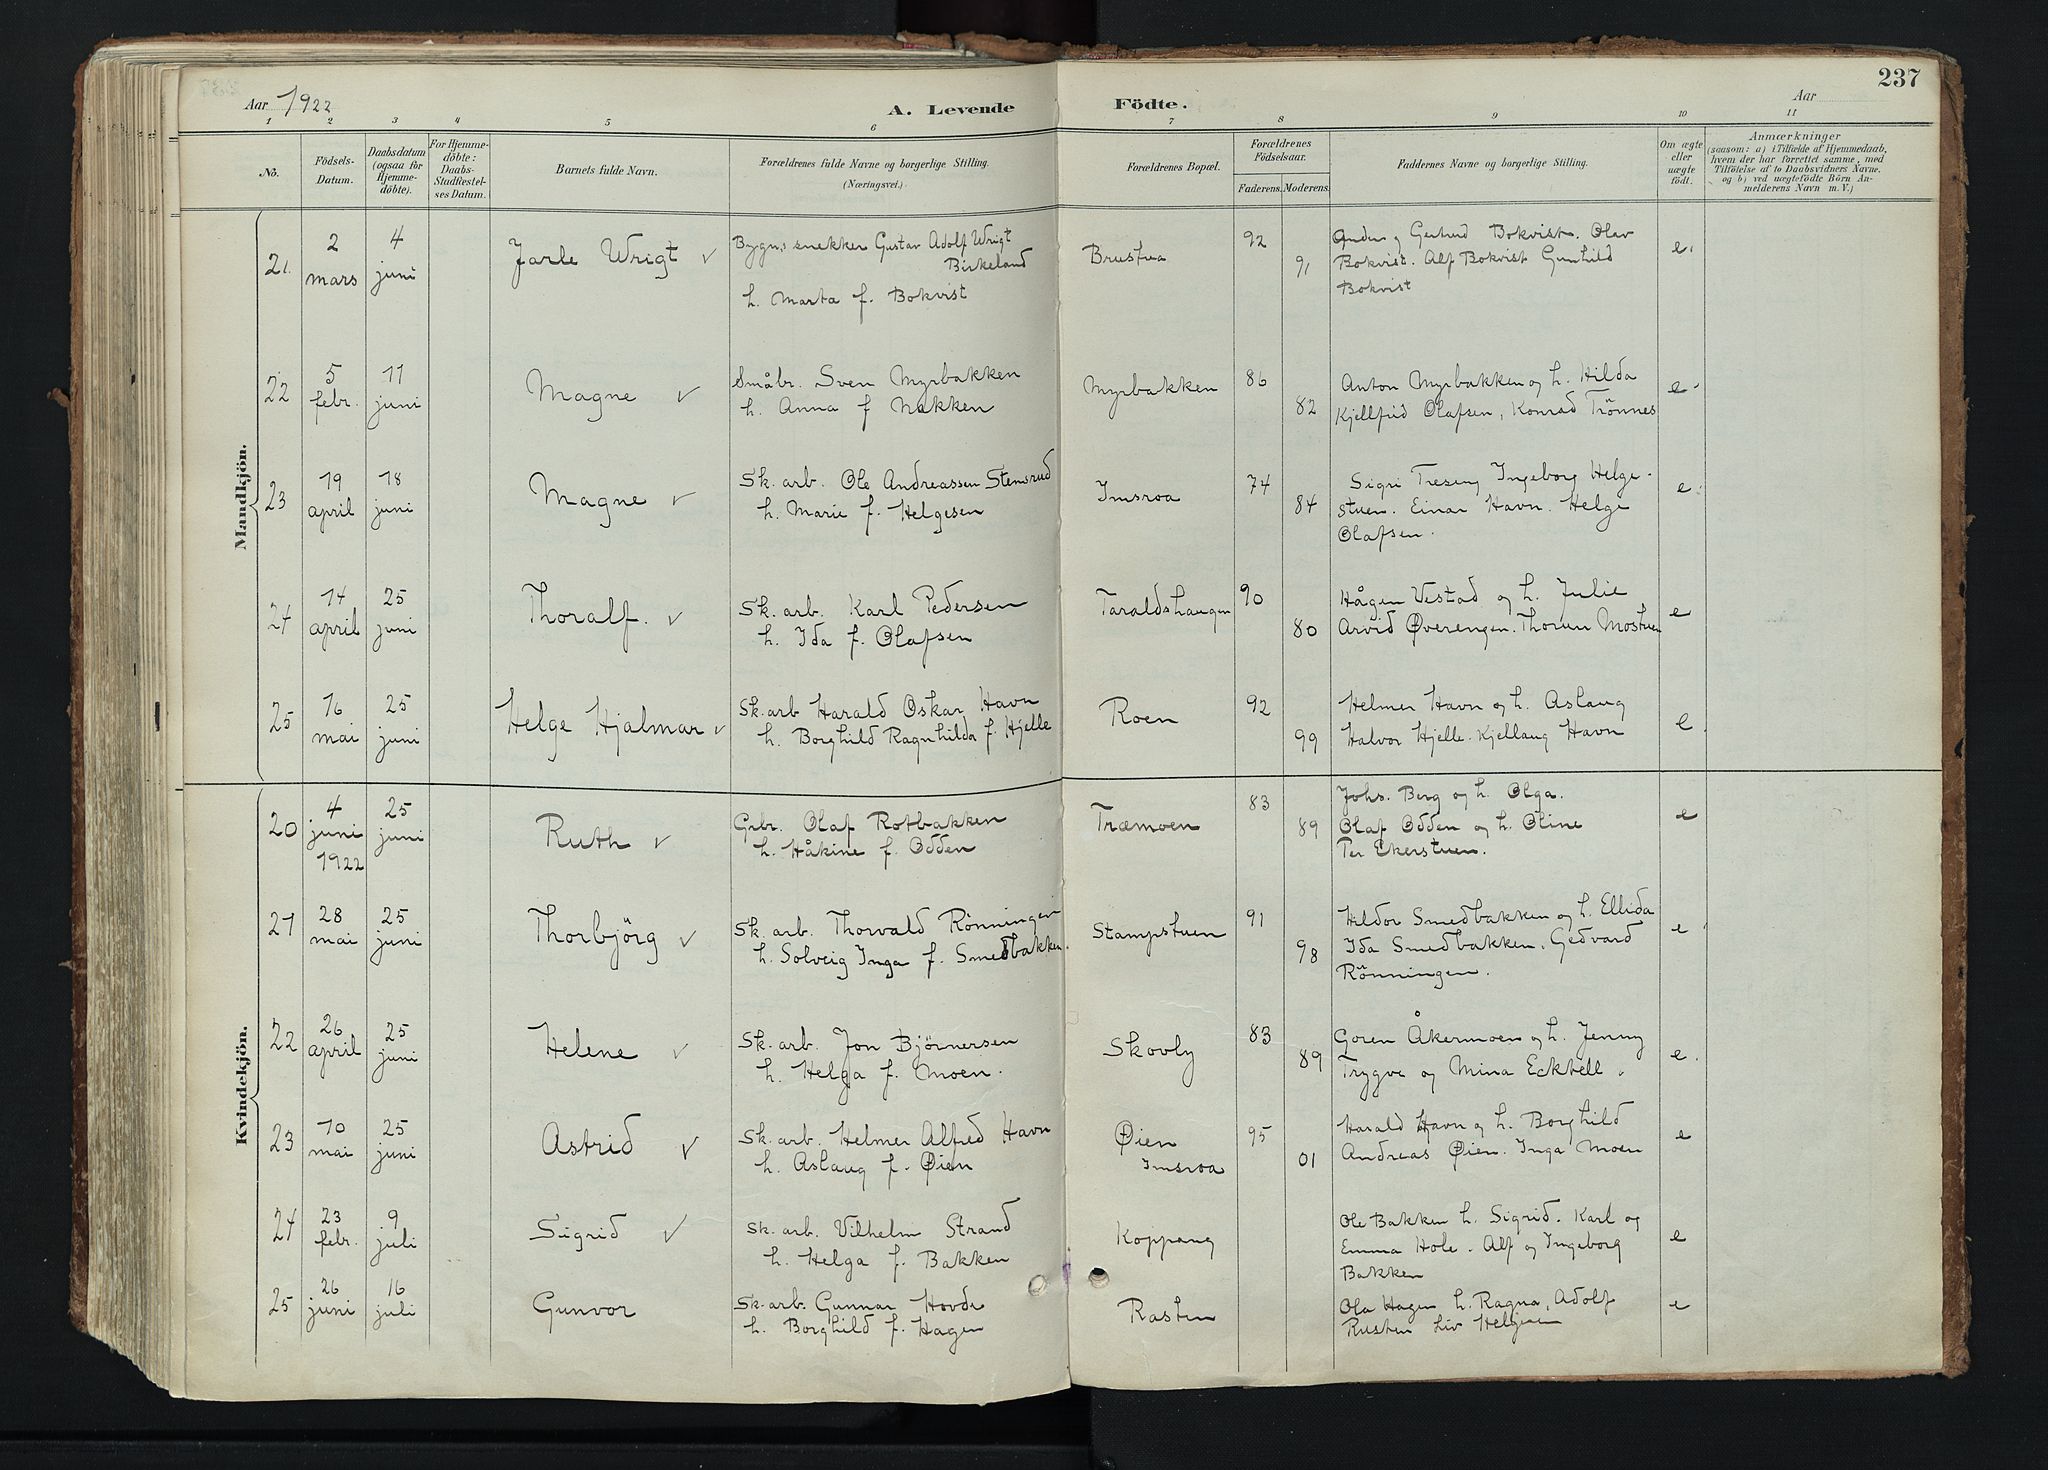 237
Aar 1922
A. Levende Födte.
Aar
1 2 3 4 5 6 7 8 9 10 11
No.
Födsels-
Datum.
Daabsdatum
(ogsaa for
Hjemme-
döbte).
For Hjemme-
döbte:
Daabs-
Stadfæstel-
ses Datum.
Barnets fulde Navn.
Forældrenes fulde Navne og borgerlige Stilling.
(Næringsvei.)
Forældrenes Bopæl.
Forældrenes
Födselsaar.
Faderens. Moderens.
Faddernes Navne og borgerlige Stilling.
Om ægte
eller
uægte
født.
Anmærkninger
(saasom: a) i Tilfælde af Hjemmedaab,
hvem der har forrettet samme, med
Tilföielse af to Daabsvidners Navne.
og b) ved uægtefödte Börn An-
melderens Navn m. V.)
Mandkjön.
21. 2 mars 4 juni Jarle Wrigt ✓
Bygn. snekker Gustav Adolf Wrigt
Birkeland
h. Marta f. Bokvist
Brustua 92 91
Anders og Gertrud Bokvist. Olav
Bokvist. Alf Bokvist Gunhild
Bokvist
e.
22 5 febr. 11 juni Magne ✓
Småbr. Sven Myrbakken
h. Anna f Nakken
Myrbakken 86 82
Anton Myrbakken og h. Hilda
Kjellfrid Olafsen, Konrad Trönnes
e
23 19 april 18 juni Magne ✓
Sk. arb. Ole Andreassen Stensrud
h. Marie f. Helgesen
Imsroa 74 84
Sigri Ingeborg Helge-
stuen. Einar Havn. Helge
Olafsen.
e
24 14 april 25 juni Thoralf. ✓
Sk. arb. Karl Pedersen
h. Ida f. Olafsen
Taraldshaugen 90 80
Hågen Vestad og h. Julie
Arvid Øverengen. Thorun Mostuen
e
25 16 mai 25 juni Helge Hjalmar ✓
Sk. arb Harald Oskar Havn
h. Borghild Ragnhilda f. Hjelle
Roen 92 99
Helmer Havn og h. Aslaug
Halvor Hjelle. Kjellaug Havn
e
Kvindekjön.
20 4 juni 1922 25 juni Ruth ✓
Grbr. Olaf Rotbakken
h. Håkine f. Odden
Træmoen 83 89
Johs. Berg og h. Olga.
Olaf Odden og h. Oline
Per Ekerstuen.
e
21 28 mai 25 juni Thorbjörg ✓
Sk. arb. Thorvald Rönningen
h. Solveig Inga f. Smedbakken.
Stampstuen 91 98
Hildor Smedbakken og h. Ellida
Ida Smedbakken. Gedvard
Rönningen.
e
22 26 april 25 juni Helene ✓
Sk. arb. Jon Björnersen
h. Helga f. Moen.
Skovly 83 89
Goren Åkermoen og h. Jenny
Trygve og Mina Eckhell.
e.
23 10 mai 25 juni Astrid ✓
Sk. arb. Helmer Alfred Havn
h. Aslaug f. Øien
Øien
Imsroa 95 01
Harald Havn og h. Borghild
Andreas Øien. Inga Moen
e
24 23 febr. 9 juli Sigrid ✓
Sk. arb. Vilhelm Strand
h. Helga f. Bakken
Koppang
Ole Bakken h. Sigrid. Karl og
Emma Hole. Alf og Ingeborg
Bakken
e
25 26 juni 16 juli Gunvor
Sk. arb. Gunnar Hovde
h. Borghild f. Hagen
Rasten
Ola Hagen h. Ragna, Adolf
Rusten Liv
e